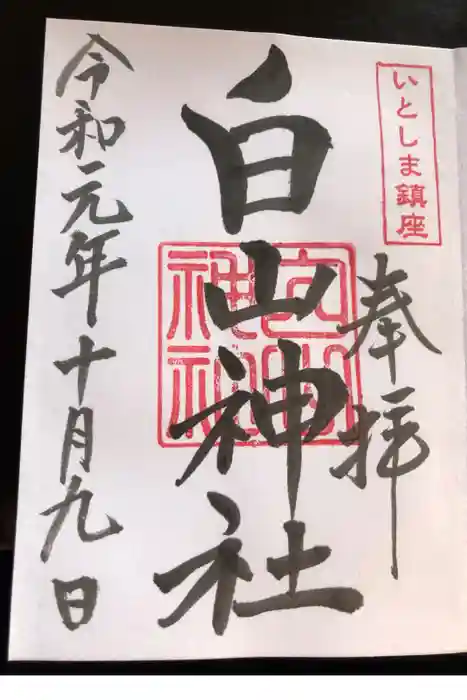 いとしま鎮座
奉拝
白山神社
白山神社
令和元年十月九日